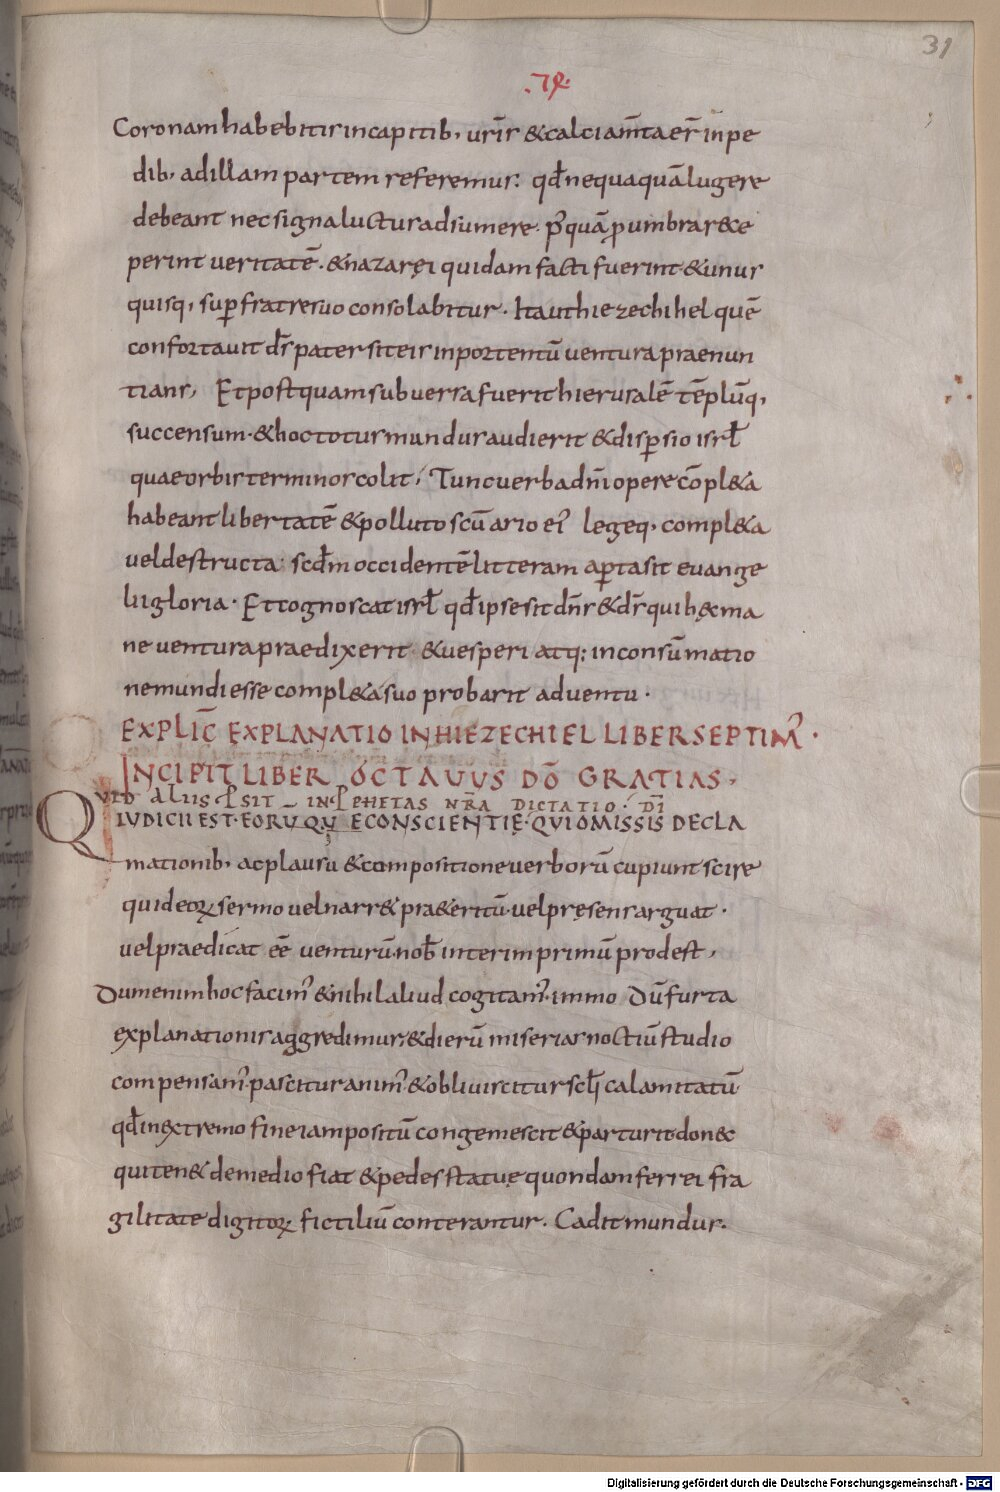 31
Coronam habebitis in capitib; ur̄is & calciam̄ta er̄ in pe
dib; ad illam partem referemus. qd̄ nequaquā lugere
debeant nec signa luctus adsumere. p̄quā p umbras & ce
perint veritatē. & nazaręi quidam facti fuerint & unus
quisq; sup fratre suo consolabitur. Ita ut hiezechihel quē
confortavit d̄s pater sit eis in portentū ventura praenun
tians, Et postquam subversa fuerit hierusalē tēplūq;
succensum. & hoc totus mundus audierit & dispersio isrl̄
quae orbis terminos colit, Tunc verba dn̄i opere cōpl&a
habeant libertatē & polluto scūario ei' legeq; compl&a
vel destructa scd̄m occidentē litteram aperta sit evange
lii gloria. Et cognoscat isrl̄ qd̄ ipse sit dn̄s & d̄s qui hęc ma
ne ventura praedixerit & vesperi atq; in consūmatio
ne mundi esse compl&a suo probarit adventu.
EXPLIC̄ EXPLANATIO IN HIEZECHIEL LIBER SEPTIM'.
INCIPIT LIBER OCTAVUS DŌ GRATIAS.
QUID ALIIS PSIT IN PPHETAS NR̄A DICTATIO. DĪ
IUDICII EST. EORŪ QUĘ CONSCIENTIĘ. QUI OMISSIS DECLA
mationib; ac plausu & compositione verborū cupiunt scire
quid eoꝝ sermo vel narr& pra&eritū vel pręsens arguat.
vel praedicat eē venturū nob̄ interim primū prodest,
Dum enim hoc facim' & nihil aliud cogitam'. immo Dū furta
explanationis aggredimur, & dierū miserias noctiū studio
compensam'. pascitur anim' & obliviscitur scl̄i calamitatū
qd̄ in extremo fine iam positū congemescit & parturit donec
qui ten& de medio fiat & pedes statuę quondam ferrei fra
gilitate digitoꝝ fictiliū conterantur. Cadit mundus.
Digitalisierung gefördert durch die Deutsche Forschungsgemeinschaft - DFG